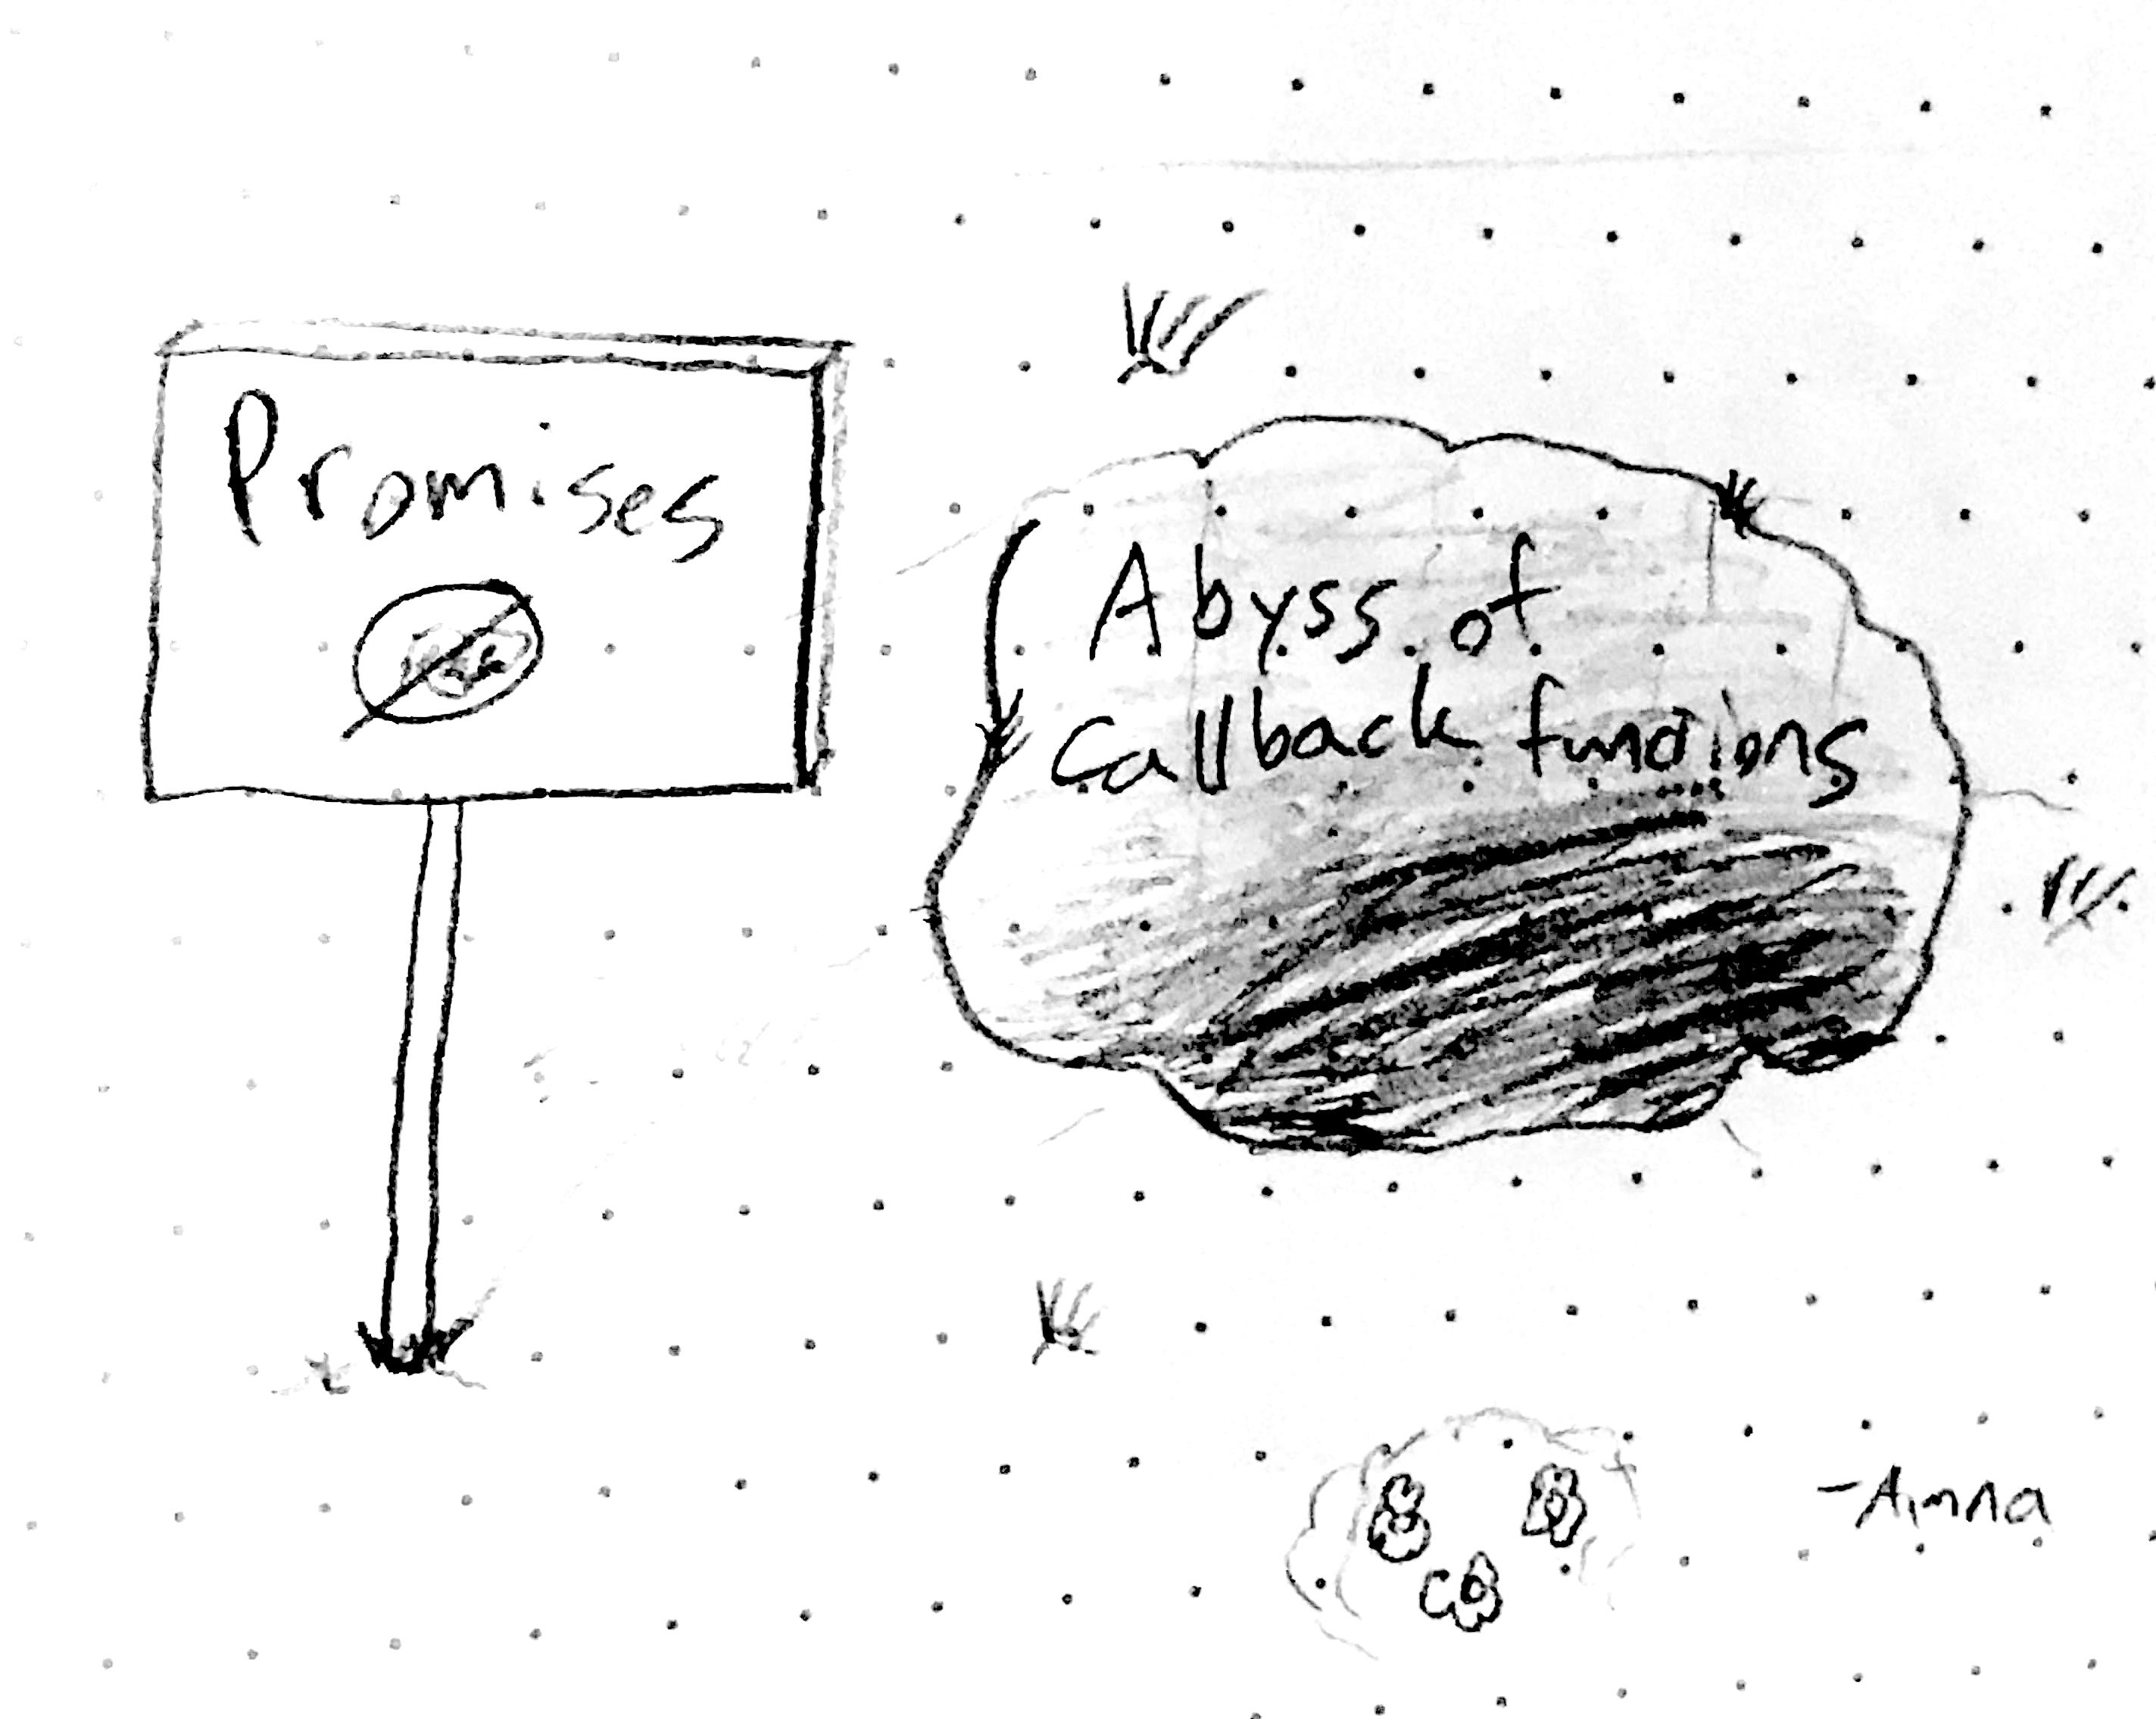 Promises
Abyss of
callback functions
-Amna